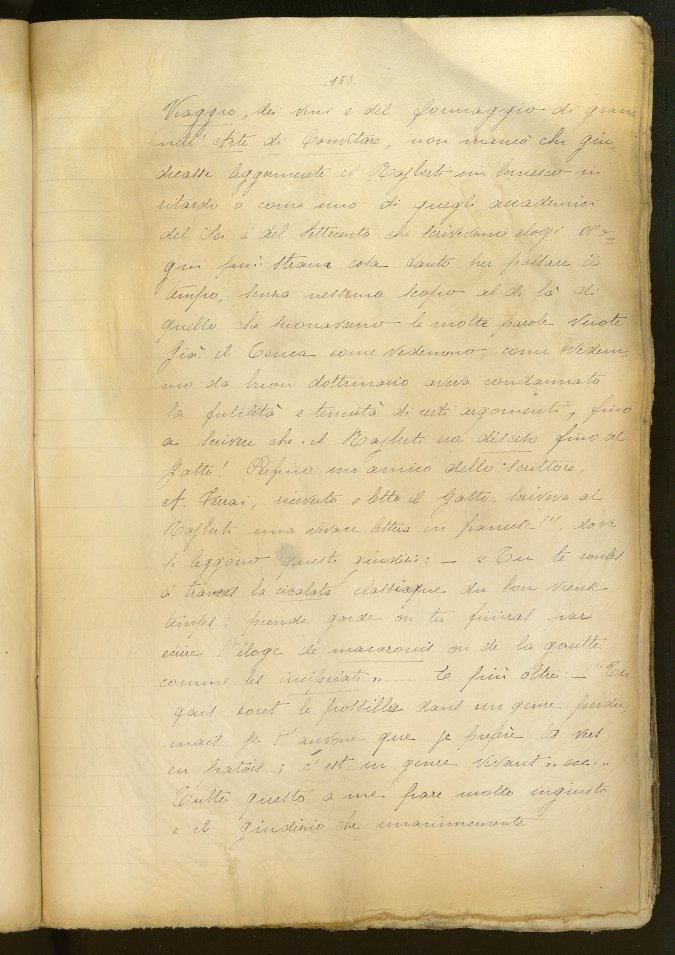 153.
Viaggio, dei vini e del formaggio di grana
nell'Arte di Convitare, non mancò chi giu-
dicasse leggermente il Rajberti un bernesco in
ritardo o come uno di quegli accademici
del Sei e del Settecento che scrivevano elogi d'o-
gni più strana cosa tanto per passare il
tempo, senza nessuno scopo al di là di
quello che suonavano le molte parole vuote
Già il Tenca come vedemmo, come
mo da buon dottrinario aveva condannato
la futilità e tenuità di certi argomenti, fino
a scrivere che il Rajberti era disceso fino al
Gatto! Perfino un amico dello scrittore,
A. ricevuto e letto il Gatto scriveva al
Rajberti una vivace lettera in francese (1), dove
si leggono questi giudizi: — « Tu te coules
à travers la cicalata classique du bon vieux
temps: prende garde ou tu finiras par
écrire l'éloge de macaronis ou de la goutte
comme les insipiati ».... E più oltre: — "Tu
fais tout le possible dans un genre perdu
mais je t'avoue que je préfère les vers
en patois; c'est un genre vivant » ecc..
Tutto questo a me pare molto ingiusto
e il giudizio che unanimemente